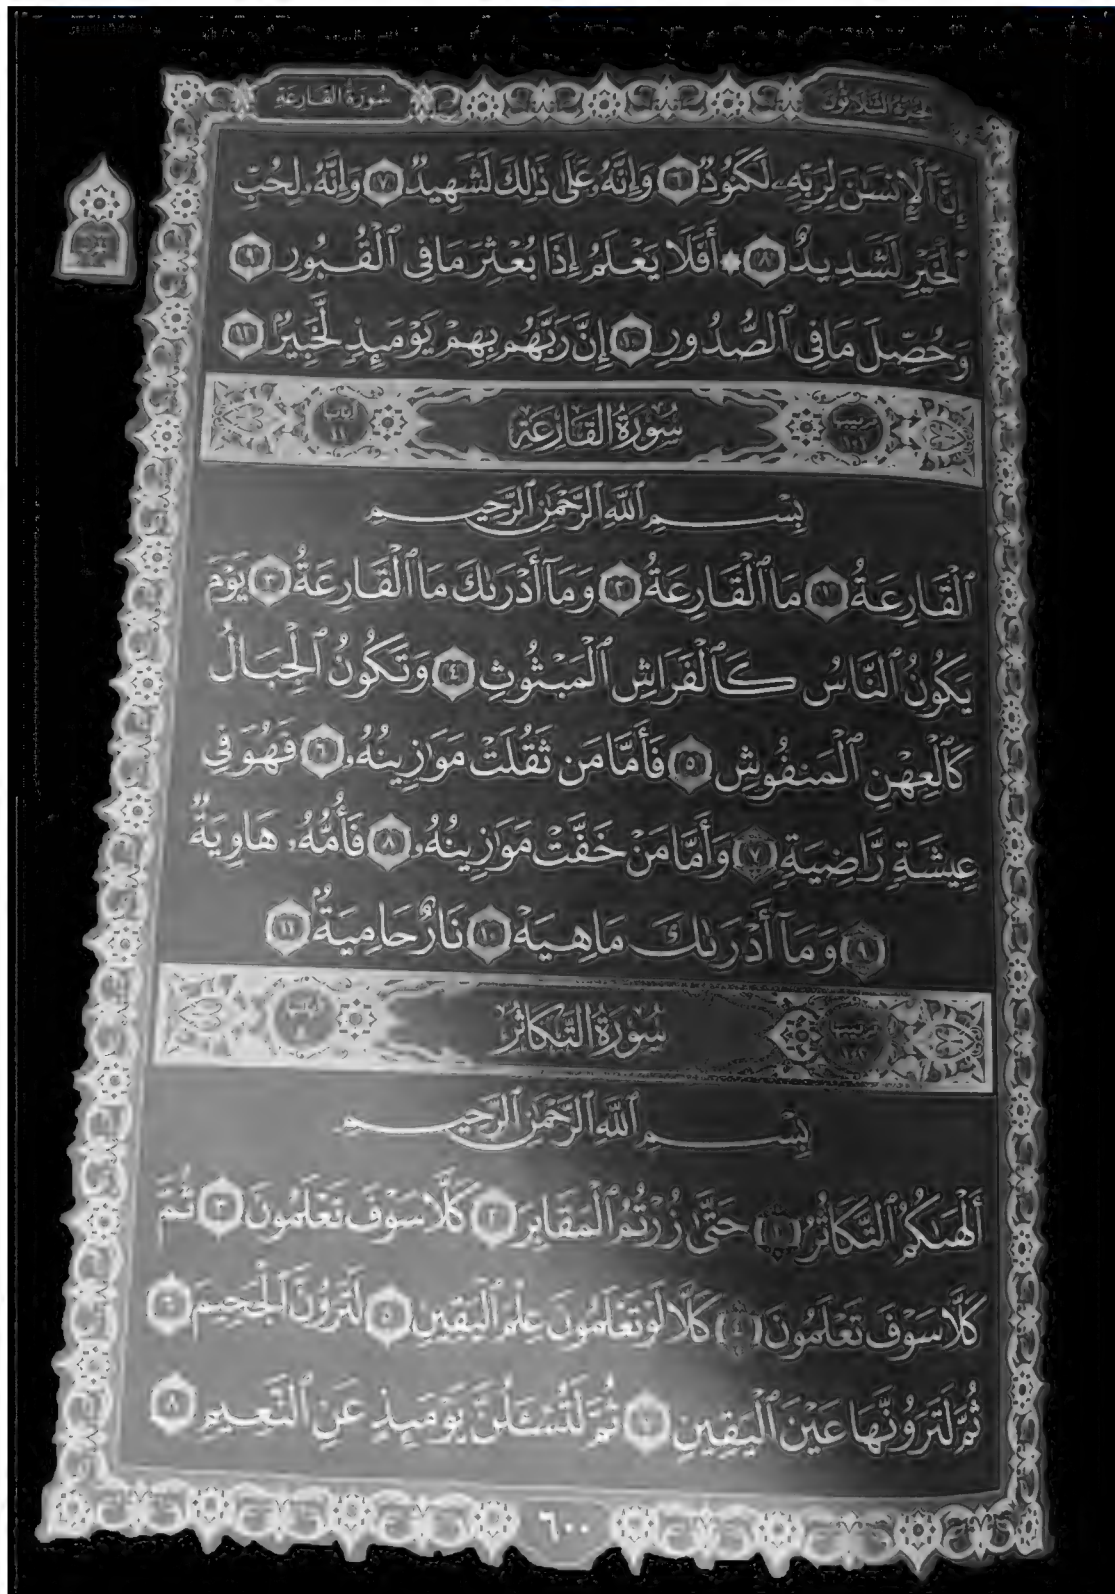 الجزء الثلاثون
سورة القارعة
إِنَّ ٱلْإِنسَٰنَ لِرَبِّهِۦ لَكَنُودٌ ٦ وَإِنَّهُۥ عَلَىٰ ذَٰلِكَ لَشَهِيدٌ ٧ وَإِنَّهُۥ لِحُبِّ
ٱلْخَيْرِ لَشَدِيدٌ ٨ ۞ أَفَلَا يَعْلَمُ إِذَا بُعْثِرَ مَا فِى ٱلْقُبُورِ ٩
وَحُصِّلَ مَا فِى ٱلصُّدُورِ ١٠ إِنَّ رَبَّهُم بِهِمْ يَوْمَئِذٍ لَّخَبِيرٌۢ ١١
ترتيبها ١٠١
سُورَةُ القَارِعَةِ
آياتها ١١
بِسْمِ ٱللَّهِ ٱلرَّحْمَٰنِ ٱلرَّحِيمِ
ٱلْقَارِعَةُ ١ مَا ٱلْقَارِعَةُ ٢ وَمَآ أَدْرَىٰكَ مَا ٱلْقَارِعَةُ ٣ يَوْمَ
يَكُونُ ٱلنَّاسُ كَٱلْفَرَاشِ ٱلْمَبْثُوثِ ٤ وَتَكُونُ ٱلْجِبَالُ
كَٱلْعِهْنِ ٱلْمَنفُوشِ ٥ فَأَمَّا مَن ثَقُلَتْ مَوَٰزِينُهُۥ ٦ فَهُوَ فِى
عِيشَةٍ رَّاضِيَةٍ ٧ وَأَمَّا مَنْ خَفَّتْ مَوَٰزِينُهُۥ ٨ فَأُمُّهُۥ هَاوِيَةٌ
٩ وَمَآ أَدْرَىٰكَ مَا هِيَهْ ١٠ نَارٌ حَامِيَةٌۢ ١١
ترتيبها ١٠٢
سُورَةُ التَّكَاثُرِ
آياتها
بِسْمِ ٱللَّهِ ٱلرَّحْمَٰنِ ٱلرَّحِيمِ
أَلْهَىٰكُمُ ٱلتَّكَاثُرُ ١ حَتَّىٰ زُرْتُمُ ٱلْمَقَابِرَ ٢ كَلَّا سَوْفَ تَعْلَمُونَ ٣ ثُمَّ
كَلَّا سَوْفَ تَعْلَمُونَ ٤ كَلَّا لَوْ تَعْلَمُونَ عِلْمَ ٱلْيَقِينِ ٥ لَتَرَوُنَّ ٱلْجَحِيمَ ٦
ثُمَّ لَتَرَوُنَّهَا عَيْنَ ٱلْيَقِينِ ٧ ثُمَّ لَتُسْـَٔلُنَّ يَوْمَئِذٍ عَنِ ٱلنَّعِيمِ ٨
٦٠٠